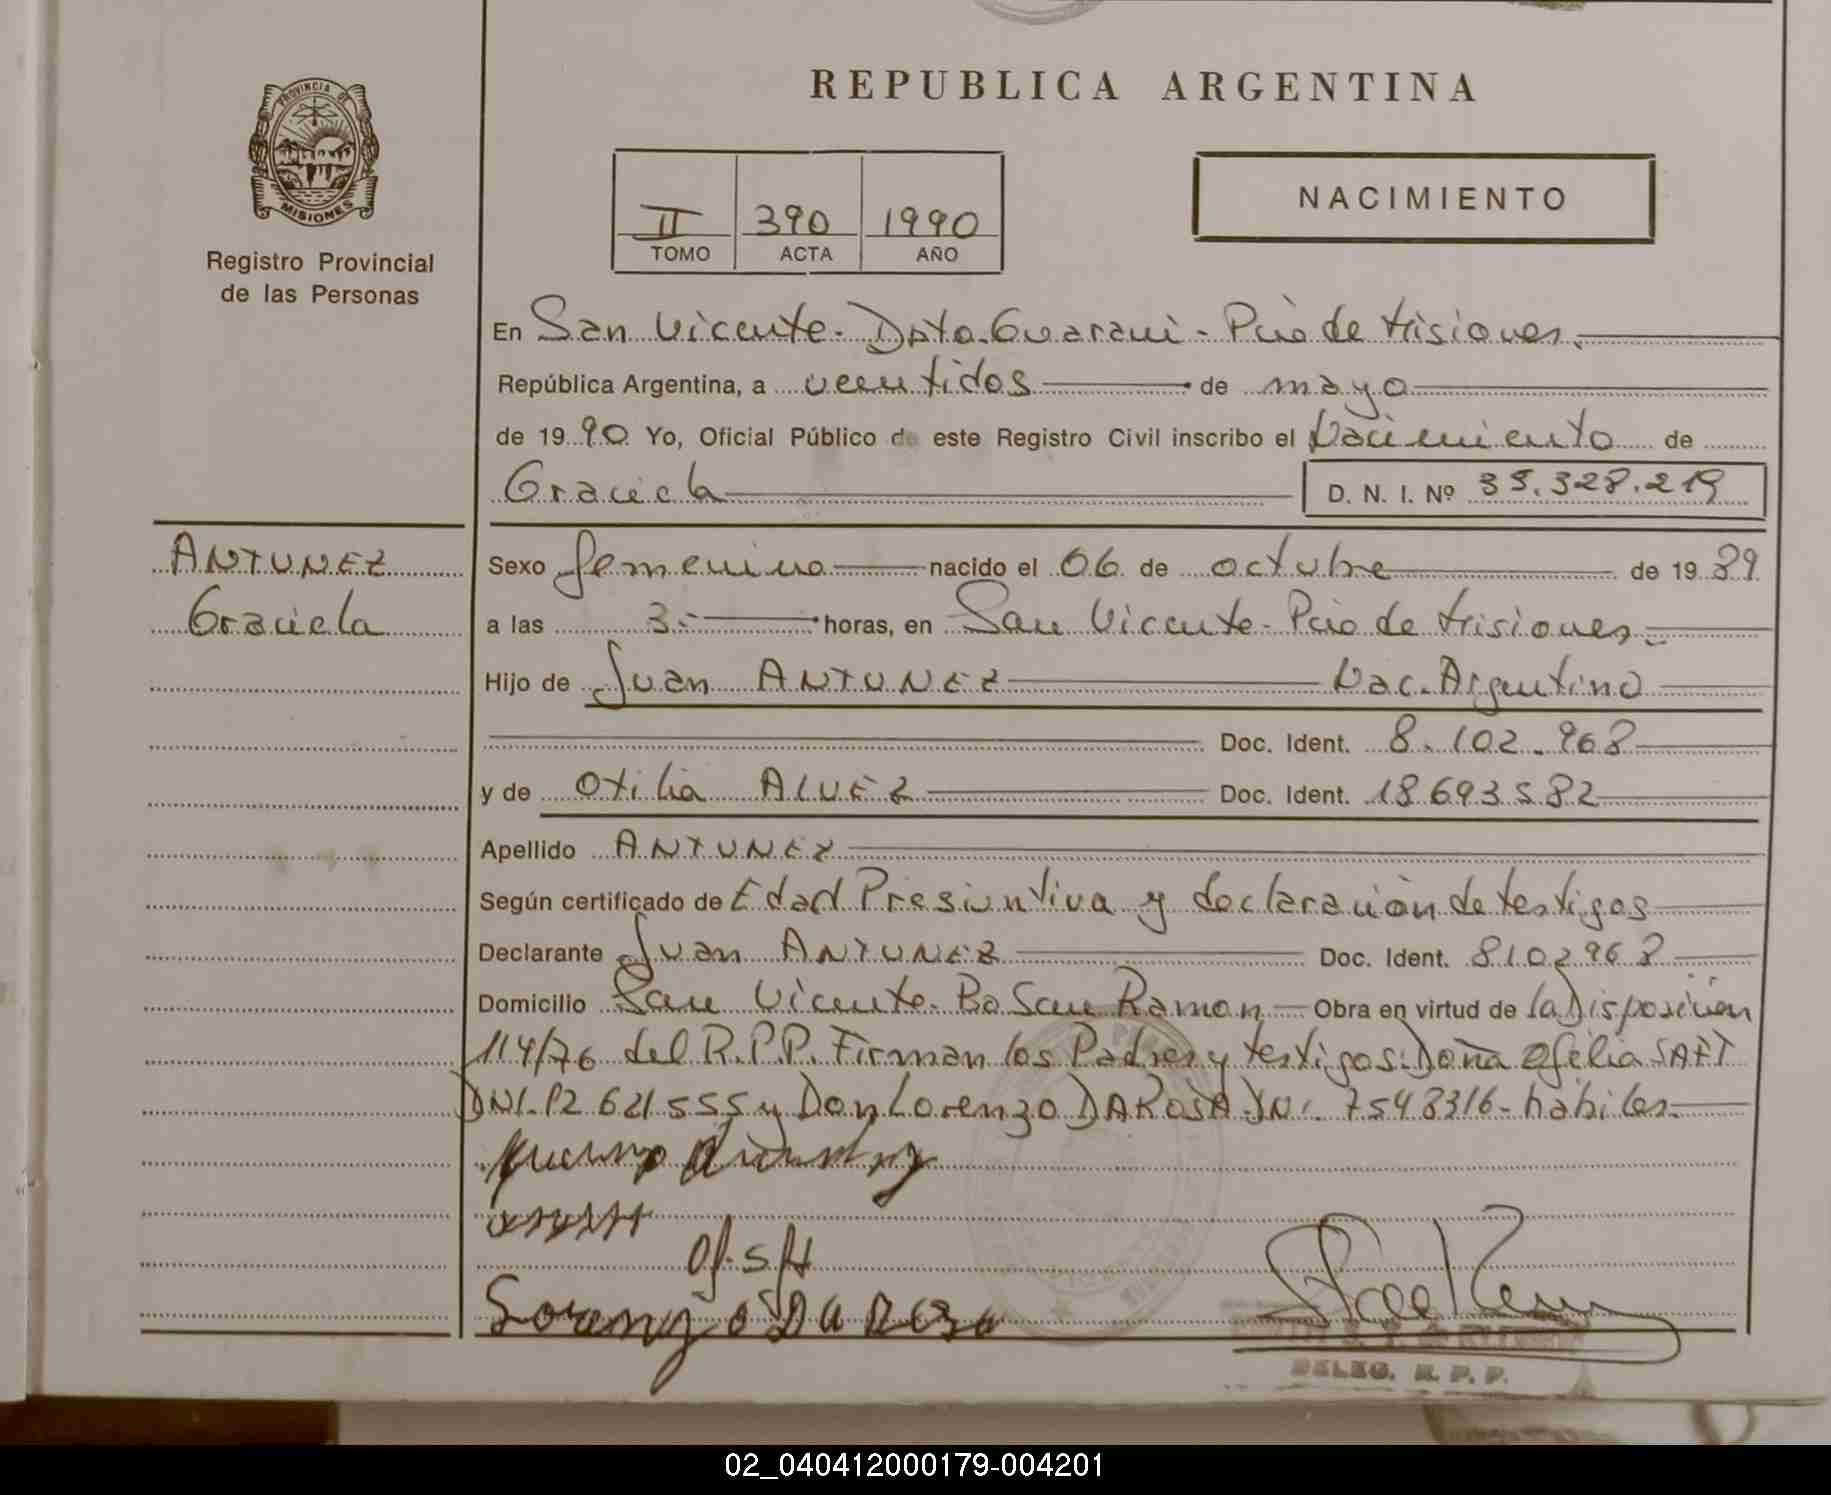 REPUBLICA ARGENTINA
PROVINCIA DE
MISIONES
Registro Provincial
de las Personas
II 390 1990
TOMO ACTA AÑO
NACIMIENTO
En San Vicente - Dpto. Guaraní - Pcia de Misiones.
República Argentina, a veintidos de mayo
de 1990 Yo, Oficial Público de este Registro Civil inscribo el Nacimiento de
Graciela D. N. I. Nº 35.328.219
ANTUNEZ
Graciela
Sexo femenino nacido el 06 de octubre de 1989
a las 3.- horas, en San Vicente - Pcia de Misiones.-
Hijo de Juan ANTUNEZ Nac. Argentino
Doc. Ident. 8.102.968
y de Otilia ALVEZ Doc. Ident. 18693582
Apellido ANTUNEZ
Según certificado de Edad Presuntiva y declaración de testigos
Declarante Juan ANTUNEZ Doc. Ident. 8102968
Domicilio San Vicente - Bo San Ramon Obra en virtud de la Disposición
114/76 del R.P.P. Firman los Padres y testigos: Doña Ofelia SAFT
DNI. 12 621555 y Don Lorenzo DAROSA DNI. 7548316 - hábiles.
Of. Sft
Lorenzo Da Rosa
DELEG. R. P. P.
02_040412000179-004201